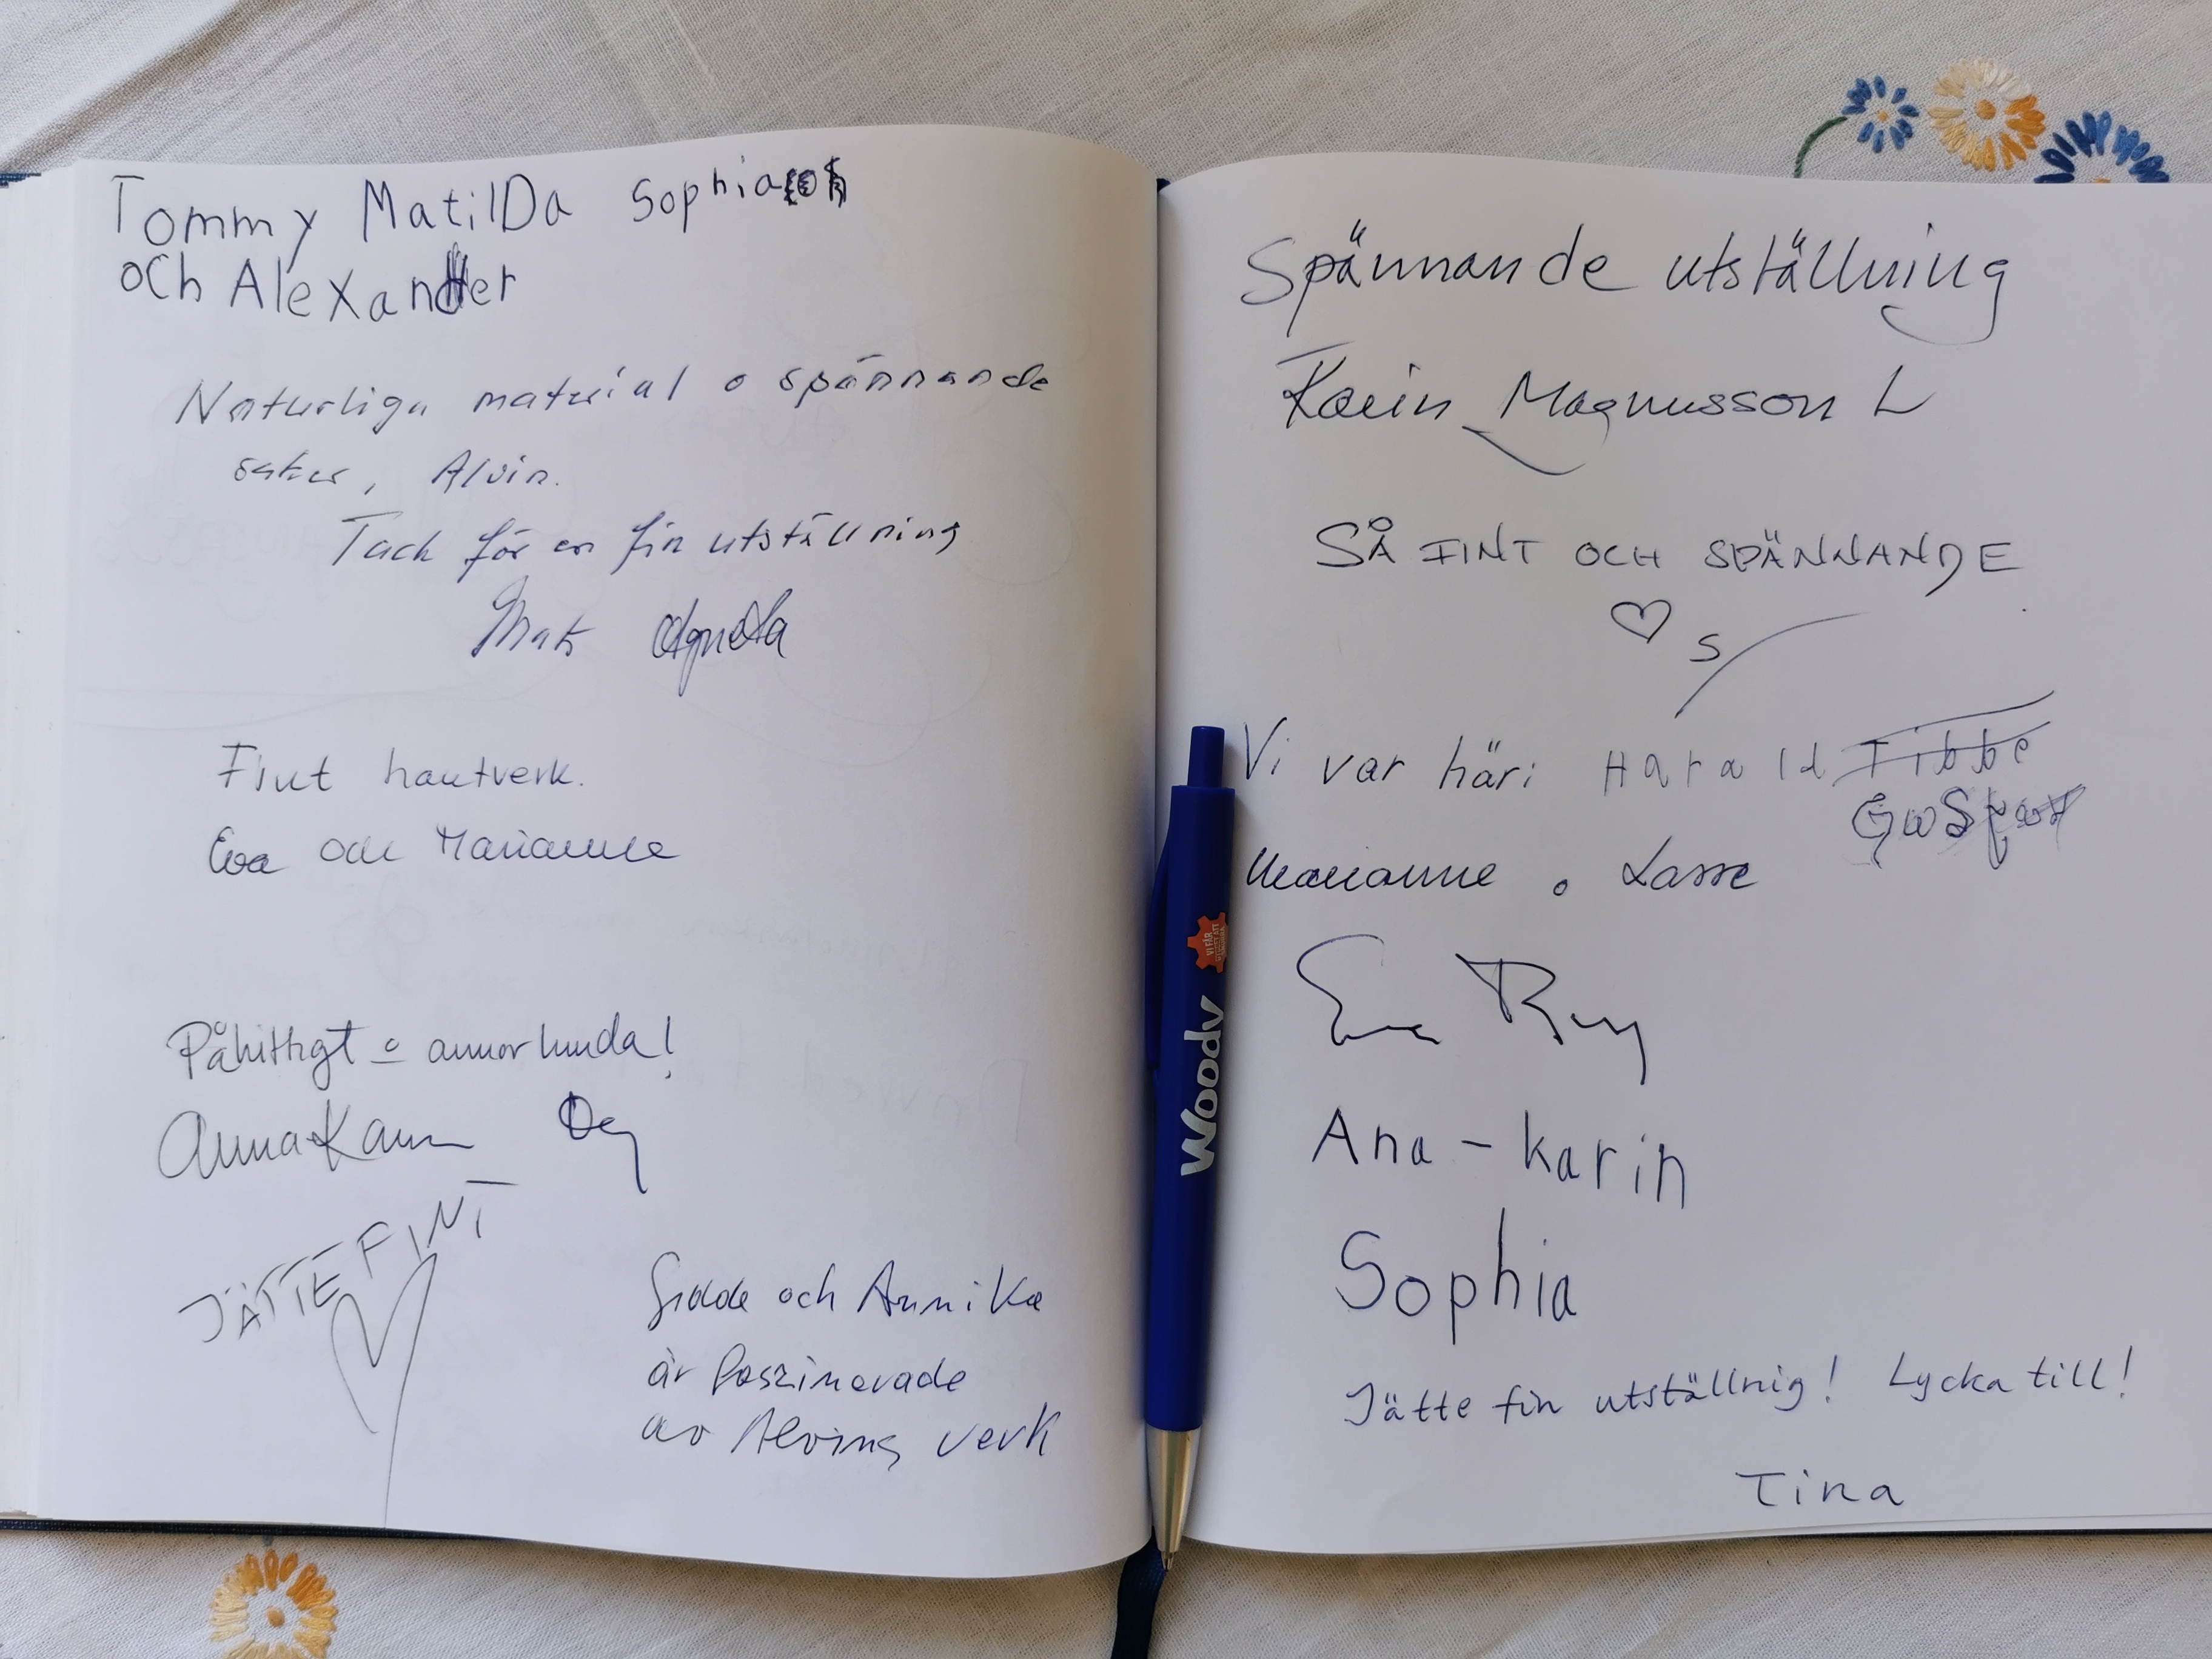 Tommy MatilDa Sophia
och Alexander
Naturliga material o spännande
saker, Alvin.
Tack för en fin utställning
Mats Agneta
Fint hantverk.
Eva och Marianne
Påhittigt o annorlunda!
AnnaKarin
JÄTTEFINT
och Annika
är faszinerade
av Alvins verk
Spännande utställning
Karin Magnusson L
SÅ FINT OCH SPÄNNANDE
♡ S
Vi var häri Harald Tibbe
Marianne o Lasse
Eva
Ana-karin
Sophia
Jätte fin utställnig! Lycka till!
Tina
Woody